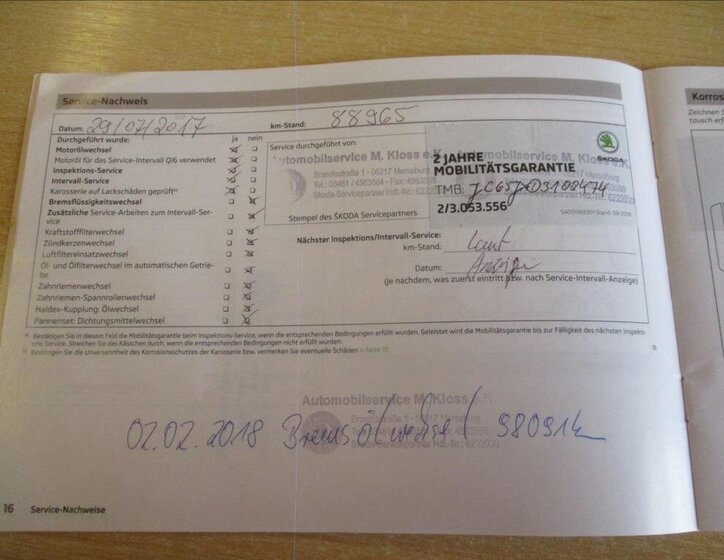 Service-Nachweis
Datum: 29/07/2017 km-Stand: 88965
Durchgeführt wurde: ja nein
Motorölwechsel
Motoröl für das Service-Intervall QI6 verwendet
Inspektions-Service
Intervall-Service
Karosserie auf Lackschäden geprüft
Bremsflüssigkeitswechsel
Zusätzliche Service-Arbeiten zum Intervall-Ser-
vice
Kraftstofffilterwechsel
Zündkerzenwechsel
Luftfiltereinsatzwechsel
Öl- und Ölfilterwechsel im automatischen Getrie-
be
Zahnriemenwechsel
Zahnriemen-Spannrollenwechsel
Haldex-Kupplung: Ölwechsel
Pannenset: Dichtungsmittelwechsel
Service durchgeführt von:
Automobilservice M. Kloss e.K.
Brandisstraße 1 · 06217 Merseburg
Tel.: 03461 /
Skoda-Servicepartner Hdl.-Nr.:
Stempel des ŠKODA Servicepartners
ŠKODA
2 JAHRE
MOBILITÄTSGARANTIE
TMB:
2/3.053.556
Nächster Inspektions/Intervall-Service:
km-Stand: Laut
Datum: Anzeige
(je nachdem, was zuerst eintritt bzw. nach Service-Intervall-Anzeige)
Bestätigen Sie in diesem Feld die Mobilitätsgarantie beim Inspektions-Service, wenn die entsprechenden Bedingungen erfüllt wurden. Geleistet wird die Mobilitätsgarantie bis zur Fälligkeit des nächsten Inspekti-
ons-Service. Streichen Sie das Kästchen durch, wenn die entsprechenden Bedingungen nicht erfüllt wurden.
Bestätigen Sie die Unversehrtheit des Korrosionsschutzes der Karosserie bzw. vermerken Sie eventuelle Schäden » Seite 17.
Automobilservice M. Kloss e.K.
Brandisstraße 1 · 06217 Merseburg
Skoda-Servicepartner Hdl.-Nr.:
02.02.2018 Bremsölwechsel 98091km
16 Service-Nachweise
Korros
Zeichnen
tausch erf